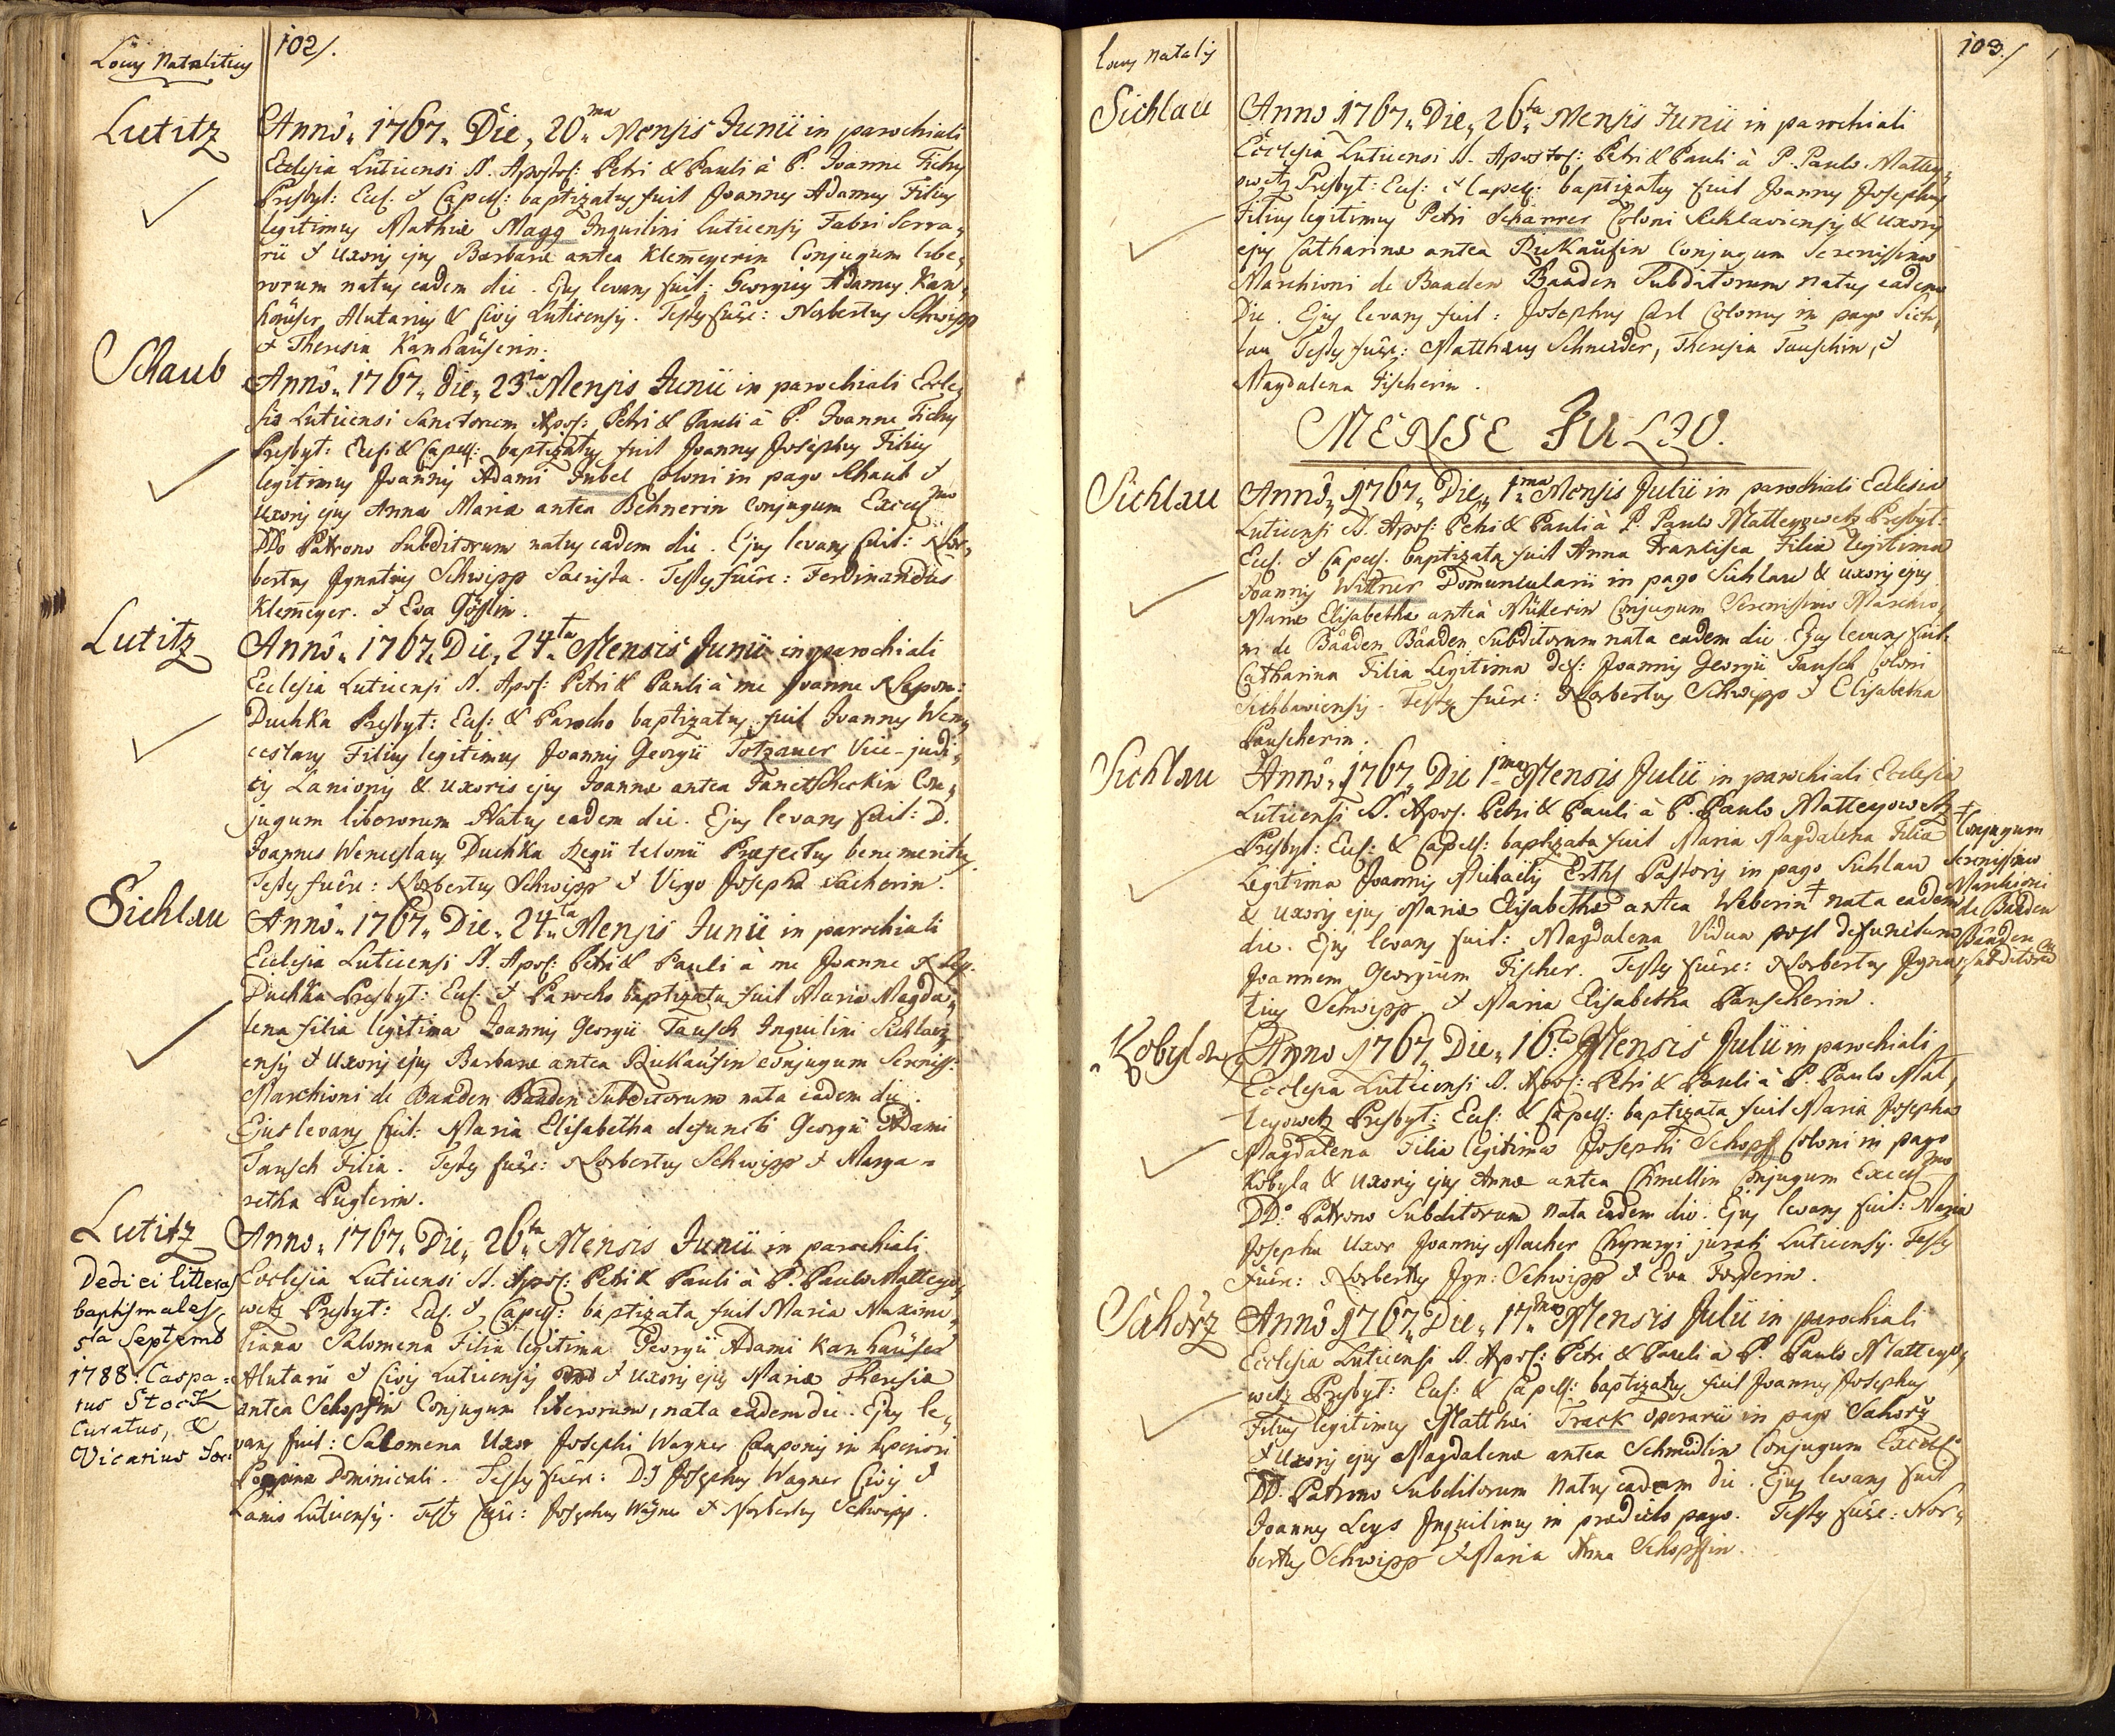 Locus Natalitius
102/.
Lutitz
Anno. 1767. Die, 20.ma Mensis Junii in parochiali
Ecclesia Luticensi SS. Apostol: Petri & Pauli à P. Joanne Tichy
Presbyt: Eccl. & Capell: baptizatus fuit Joannes Adamus Filius
legitimus Mathiæ Magg Inquilini Luticensis Fabri Serra„
rii & Uxoris ejus Barbaræ antea Klemeyerin Conjugum libe„
rorum natus eadem die. Ejus levans fuit: Georgius Adamus Kan„
häuser Alutarius & Civis Luticensis. Testes fuêre: Norbertus Schwipp
& Theresia Kanhäuserin.
Schaub
Anno. 1767. die. 23.tia Mensis Junii in parochiali Eccle„
sia Luticensi Sanctorum Apos: Petri & Pauli à P. Joanne Tichy
Presbyt: Eccl: & Capell: baptizatus fuit Joannes Josephus Filius
legitimus Joannis Adami Jubel Coloni in pago Schaub &
Uxoris ejus Annæ Mariæ antea Behnerin Conjugum Excell.mo
DDo Patrono Subditorum natus eadem die. Ejus levans fuit: Nor„
bertus Ignatius Schwipp Sacrista. Testes fuêre: Ferdinandus
Klemeyer. & Eva Gößlin.
Lutitz
Anno. 1767. Die, 24.ta Mensis Junii in parochiali
Ecclesia Luticensi SS. Apos: Petri & Pauli à me Joanne Nepom:
Duchka Presbyt: Eccl: & Parocho baptizatus fuit Joannes Wen„
ceslaus Filius legitimus Joannis Georgii Totzauer Vice-judi„
cis Lanionis & uxoris ejus Joannæ antea Con„
jugum liberorum Natus eadem die. Ejus levans fuit: D.
Joannes Wenceslaus Duchka Regii telonii Præfectus benemeritus.
Testes fuêre: Norbertus Schwipp & Virgo Josepha Sacherin.
Sichlau
Anno. 1767. Die. 24.ta Mensis Junii in parochiali
Ecclesia Luticensi SS. Apos: Petri & Pauli à me Joanne Nep.
Duchka Presbyt: Eccl: & Parocho baptizata fuit Maria Magda„
lena filia legitima Joannis Georgii Tausch Inquilini Sichlavi„
ensis & Uxoris ejus Barbaræ antea Rickaufin conjugum Sereniss:
Marchioni de Baaden Baaden Subditorum nata eadem die.
Ejus levans fuit: Maria Elisabetha defuncti Georgii Adami
Tausch Filia. Testes fuêre: Norbertus Schwipp & Marga=
retha Puglerin.
Lutitz
Anno. 1767. Die. 26.ta Mensis Junii in parochiali
Ecclesia Luticensi SS. Apos: Petri & Pauli à P. Paulo Matteyo„
wetz Presbyt: Eccl. & Capell: baptizata fuit Maria Maximi„
liana Salomena Filia legitima Georgii Adami Kanhäuser
Alutarii & Civis Luticensis & Uxoris ejus Mariæ Theresiæ
antea Schopffin Conjugum liberorum, nata eadem die. Ejus le„
vans fuit: Salomena Uxor Josephi Wagner Cauponis in superiori
Popina Dominicali. Testes fuêre: Josephus Wagner Civis &
Lanio Luticensis. Testes fuêre: Josephus Wagner & Norbertus Schwipp.
Dedi ei litteras
baptismales
5ta Septemb
1788. Caspa„
rus Stock
Curatus, &
Vicarius For:
Locus Natalis
103./
Sichlau
Anno 1767. Die. 26.ta Mensis Junii in parochiali
Ecclesia Luticensi SS. Apostol: Petri & Pauli à P. Paulo Mattey„
owetz Presbyt: Eccl: & Capell: baptizatus fuit Joannes Josephus
Filius legitimus Petri Scharrer Coloni Sichlaviensis & Uxoris
ejus Catharinæ antea Rickaufin Conjugum Serenissimo
Marchioni de Baaden Baaden Subditorum natus eadem
Die. Ejus levans fuit: Josephus Carl Colonus in pago Sich„
lau Testes fuêre: Matthæus Schneider, Theresia Tauschin, &
Magdalena Fischerin.
MENSE JULIO.
Sichlau
Anno. 1767. Die. 1.ma Mensis Julii in parochiali Ecclesia
Luticensi SS. Apos: Petri & Pauli à P. Paulo Matteyowetz Presbyt:
Eccl. & Capell. baptizata fuit Anna Francisca Filia legitima
Joannis Wittner Domuncularii in pago Sichlau & uxoris ejus
Mariæ Elisabethæ antea Müllerin Conjugum Serenissimo Marchio„
ni de Baaden Baaden Subditorum nata eadem die. Ejus levans fuit:
Catharina Filia Legitima def: Joannis Georgii Tausch Coloni
Sichlaviensis. Testes fuêre: Norbertus Schwipp & Elisabetha
Pauscherin.
Sichlau
Anno. 1767. Die 1.ma Mensis Julii in parochiali Ecclesia
Luticensi SS. Apos. Petri & Pauli à P. Paulo Matteyowetz
Presbyt: Eccl: & Capell: baptizata fuit Maria Magdalena Filia
Legitima Joannis Michaelis Erths Pastoris in pago Sichlau
& Uxoris ejus Mariæ Elisabethæ antea Weberin † nata eadem
die. Ejus levans fuit: Magdalena Vidua post defunctum
Joannem Georgium Fischer. Testes fuêre: Norbertus Igna„
tius Schwipp & Maria Elisabetha Pauscherin.
† Conjugum
Serenissimo
Marchioni
de Baaden
Baaden
Subditorum
Kobyla
Anno 1767. Die. 16.ta Mensis Julii in parochiali
Ecclesia Luticensi SS. Apos: Petri & Pauli à P. Paulo Mat„
teyowetz Presbyt: Eccl: & Capell: baptizata fuit Maria Josepha
Magdalena Filia legitima Josephi Schopff Coloni in pago
Kobyla & Uxoris ejus Annæ antea Chmellin Conjugum Excell.mo
DD.o Patrono Subditorum nata eadem die. Ejus levans fuit: Maria
Josepha Uxor Joannis Macher Chyrurgi jurati Luticensis. Testes
fuêre: Norbertus Ign: Schwipp & Eva Forsterin.
Sahorz
Anno 1767. Die. 17.ma Mensis Julii in parochiali
Ecclesia Luticensi SS. Apos: Petri & Pauli à P. Paulo Matteyo„
wetz Presbyt: Eccl: & Capell: baptizatus fuit Joannes Josephus
Filius legitimus Matthæi Track operarii in pago Sahorz
& Uxoris ejus Magdalenæ antea Schmidlin Conjugum Excell:
DD. Patrono Subditorum natus eadem die. Ejus levans fuit
Joannes Leys Inquilinus in prædicto pago. Testes fuêre: Nor„
bertus Schwipp & Maria Anna Schopffin.